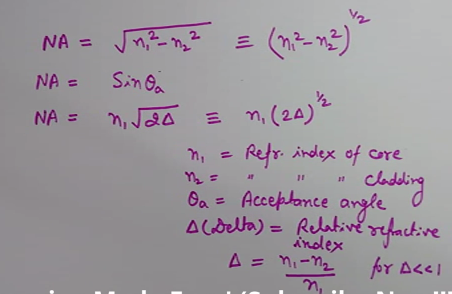 NA = √n₁²-n₂² ≡ (n₁²-n₂²)^1/2
NA = Sinθa
NA = n₁√2Δ ≡ n₁(2Δ)^1/2
n₁ = Refr. index of core
n₂ = " " " Cladding
θa = Acceptance angle
Δ(Delta) = Relative refractive
index
Δ = n₁-n₂ / n₁ for Δ<<1